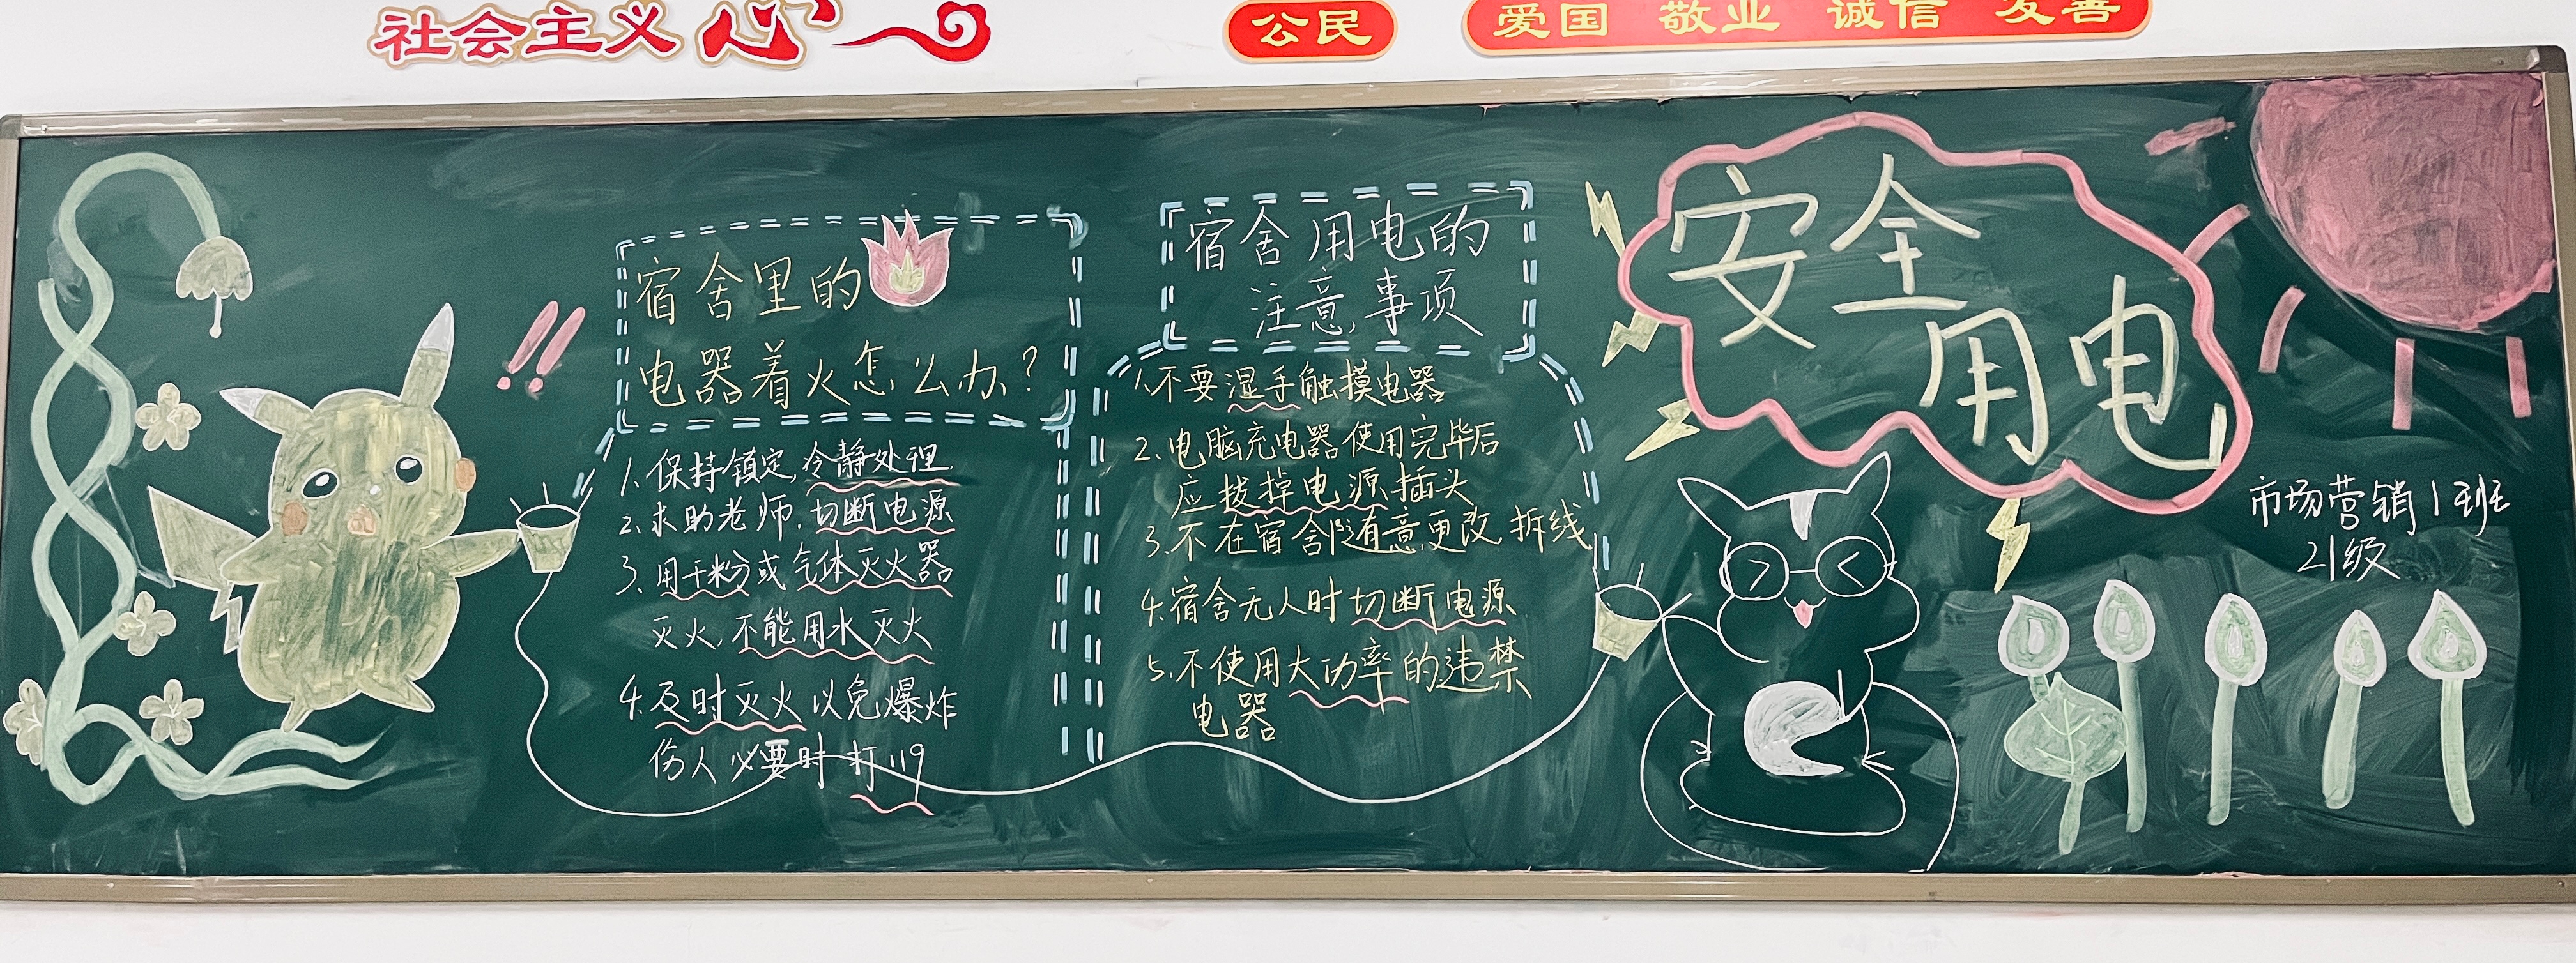 社会主义
公民
爱国 敬业 诚信 友善
宿舍里的
电器着火怎么办?
1.保持镇定,冷静处理.
2.求助老师.切断电源
3.用干粉或气体灭火器
灭火,不能用水灭火
4.及时灭火以免爆炸
伤人必要时打119
宿舍用电的
注意事项
1.不要湿手触摸电器
2.电脑充电器使用完毕后
应拔掉电源插头
3.不在宿舍随意更改拆线
4.宿舍无人时切断电源
5.不使用大功率的违禁
电器
安全
用电
市场营销1班
21级